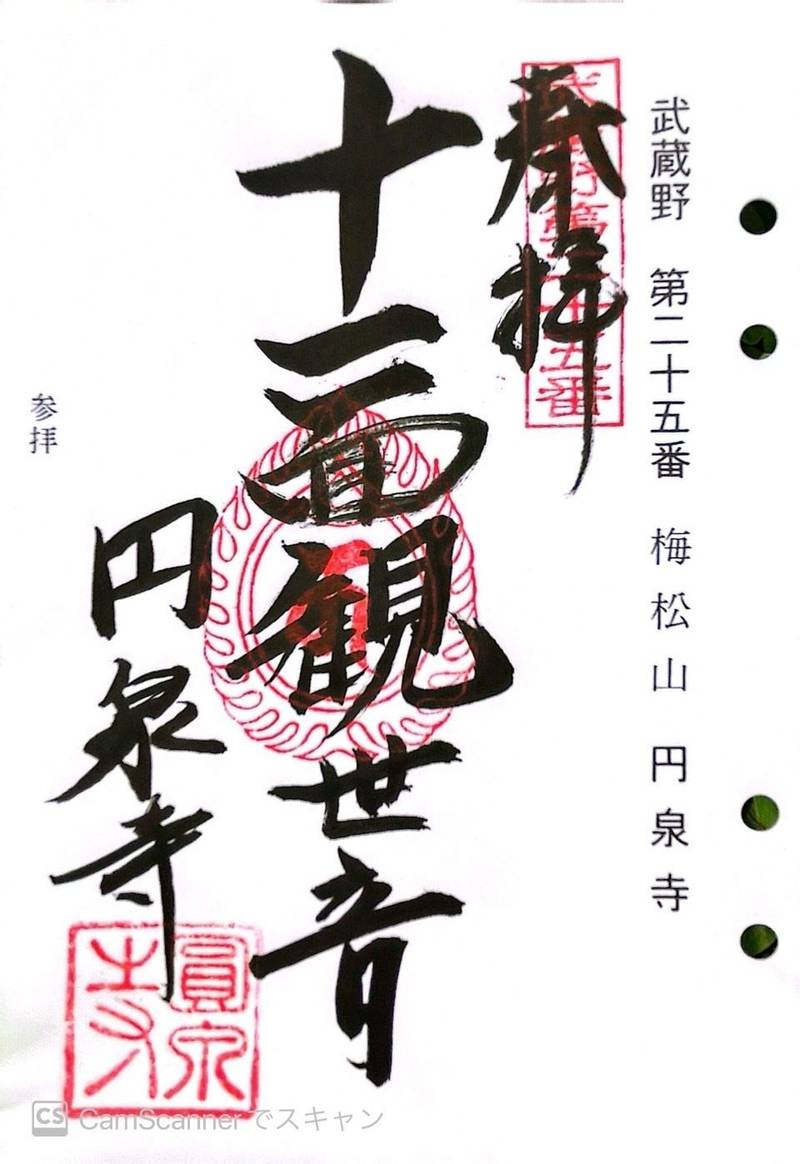 武蔵野 第二十五番 梅松山 円泉寺
武蔵野第二十五番
奉拝
十一面観世音
円泉寺
圓泉寺
参拝
CS CamScanner でスキャン